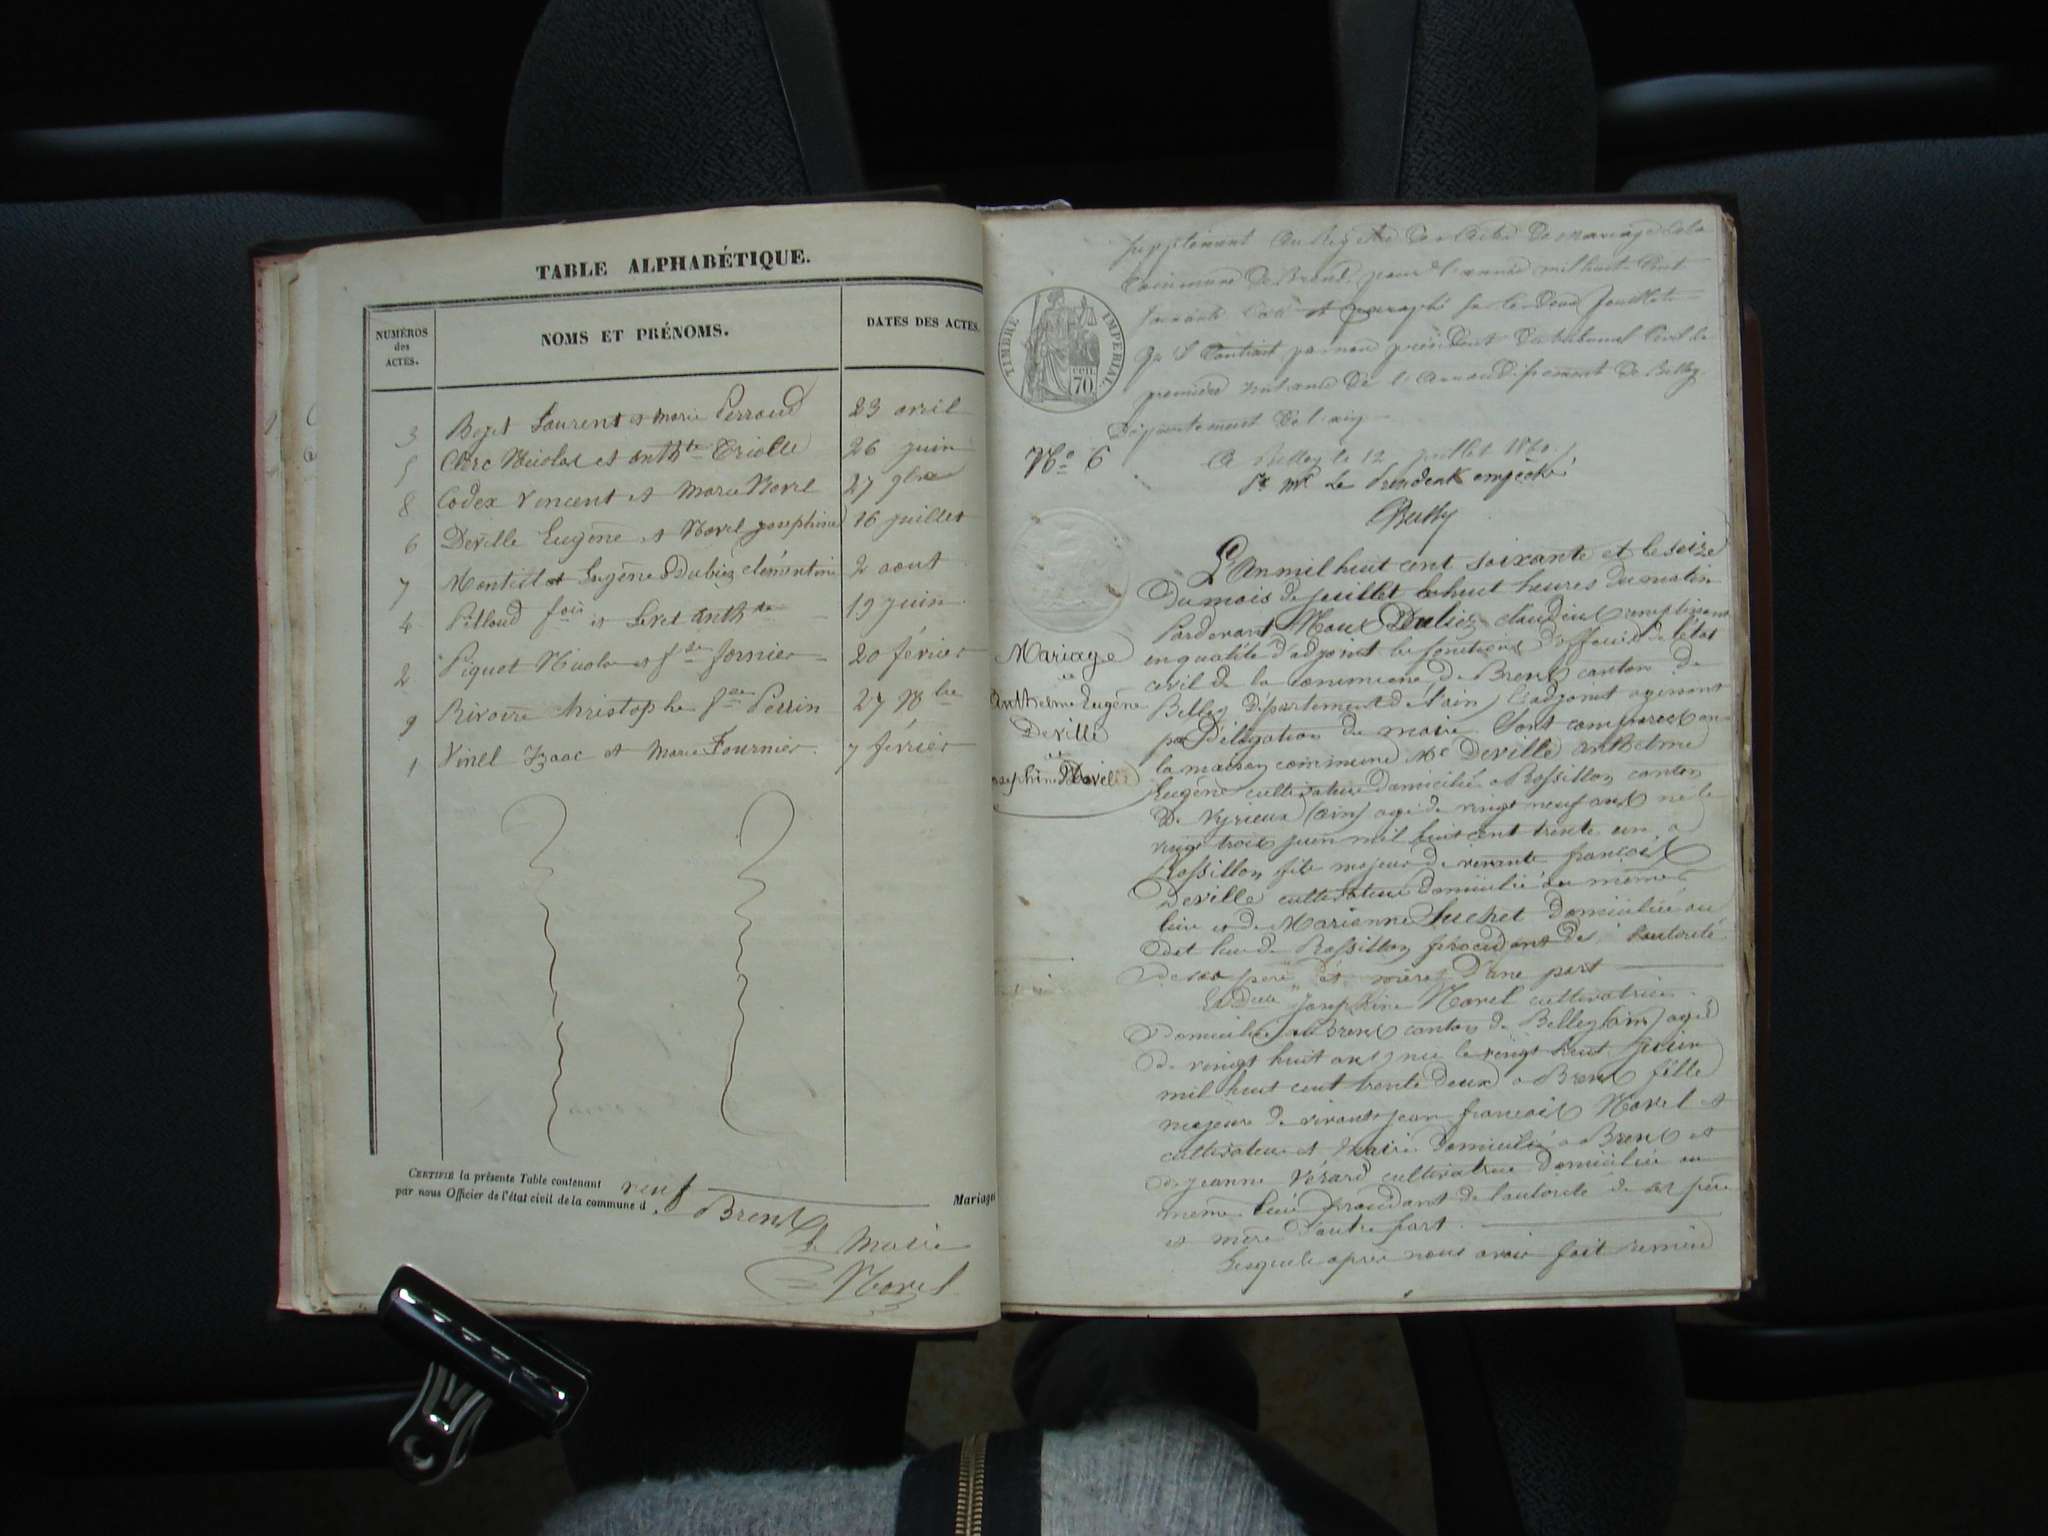 TABLE ALPHABÉTIQUE.
NUMÉROS
des
ACTES.
NOMS ET PRÉNOMS.
DATES DES ACTES.
3 Bejet Laurent et Marie Perraud 23 avril
5 Clerc Nicolas et Anthte Triolle 26 juin
8 Codex Vincent et Marie Norel 27 9bre
6 Deville Eugène et Norel Josephine 16 juillet
7 Eugène Dubiez clémentine 2 aout
4 Pilloud fois et anthte 19 juin
2 Piquet Nicolas et fse fornier 20 février
9 Rivoire christophe fse Perrin 27 Xbre
1 Vinel Izaac et Marie Fournier 7 février
CERTIFIE la présente Table contenant neuf Mariages
par nous Officier de l'état civil de la commune d e Brens
Le Maire
Norel
Supplément au Registre des Actes de mariage de la
Commune de Brens pour l'année mil huit Cent
Soixante Coté et paraphé
par nous président du tribunal Civil de
première instance de l'arrondissement de Belley
Département de l'ain
A Belley le 12 juillet 1860
Pr Mr Le President empêché
TIMBRE IMPERIAL
70 cen
No 6
Mariage
de
Anthelme Eugène
Deville
et
Josephine Norel
L'An mil huit cent soixante et le seize
du mois de juillet à huit heures du matin
Pardevant Nous Dubiez claudius remplissant
en qualité d'adjoint les fonctions d'officier de l'état
civil de la commune de Brens canton de
Belley département de l'ain, l'adjoint agissant
par Délégation du maire Sont comparus en
la maison commune Mr Deville anthelme
Eugène cultivateur domicilié à Rossillon canton
de Virieux (ain) agé de vingt neuf ans né le
vingt trois juin mil huit cent trente un a
Rossillon fils majeur de vivants françois
Deville cultivateur domicilié au même
lieu et de Marianne Suchet domiciliée au
dit lieu de Rossillon procédant de l'autorité
de ses père et mère d'une part
Et Delle Josephine Norel cultivatrice
domiciliée à Brens canton de Belley (ain) agée
de vingt huit ans née le vingt huit juin
mil huit cent trente deux a Brens fille
majeure de vivants jean françois Norel et
cultivateur et Maire domicilié a Brens et
de jeanne Vérard cultivatrice domiciliée au
même lieu procédant de l'autorité de ses père
et mère d'autre part.
Lesquels après nous avoir fait remise